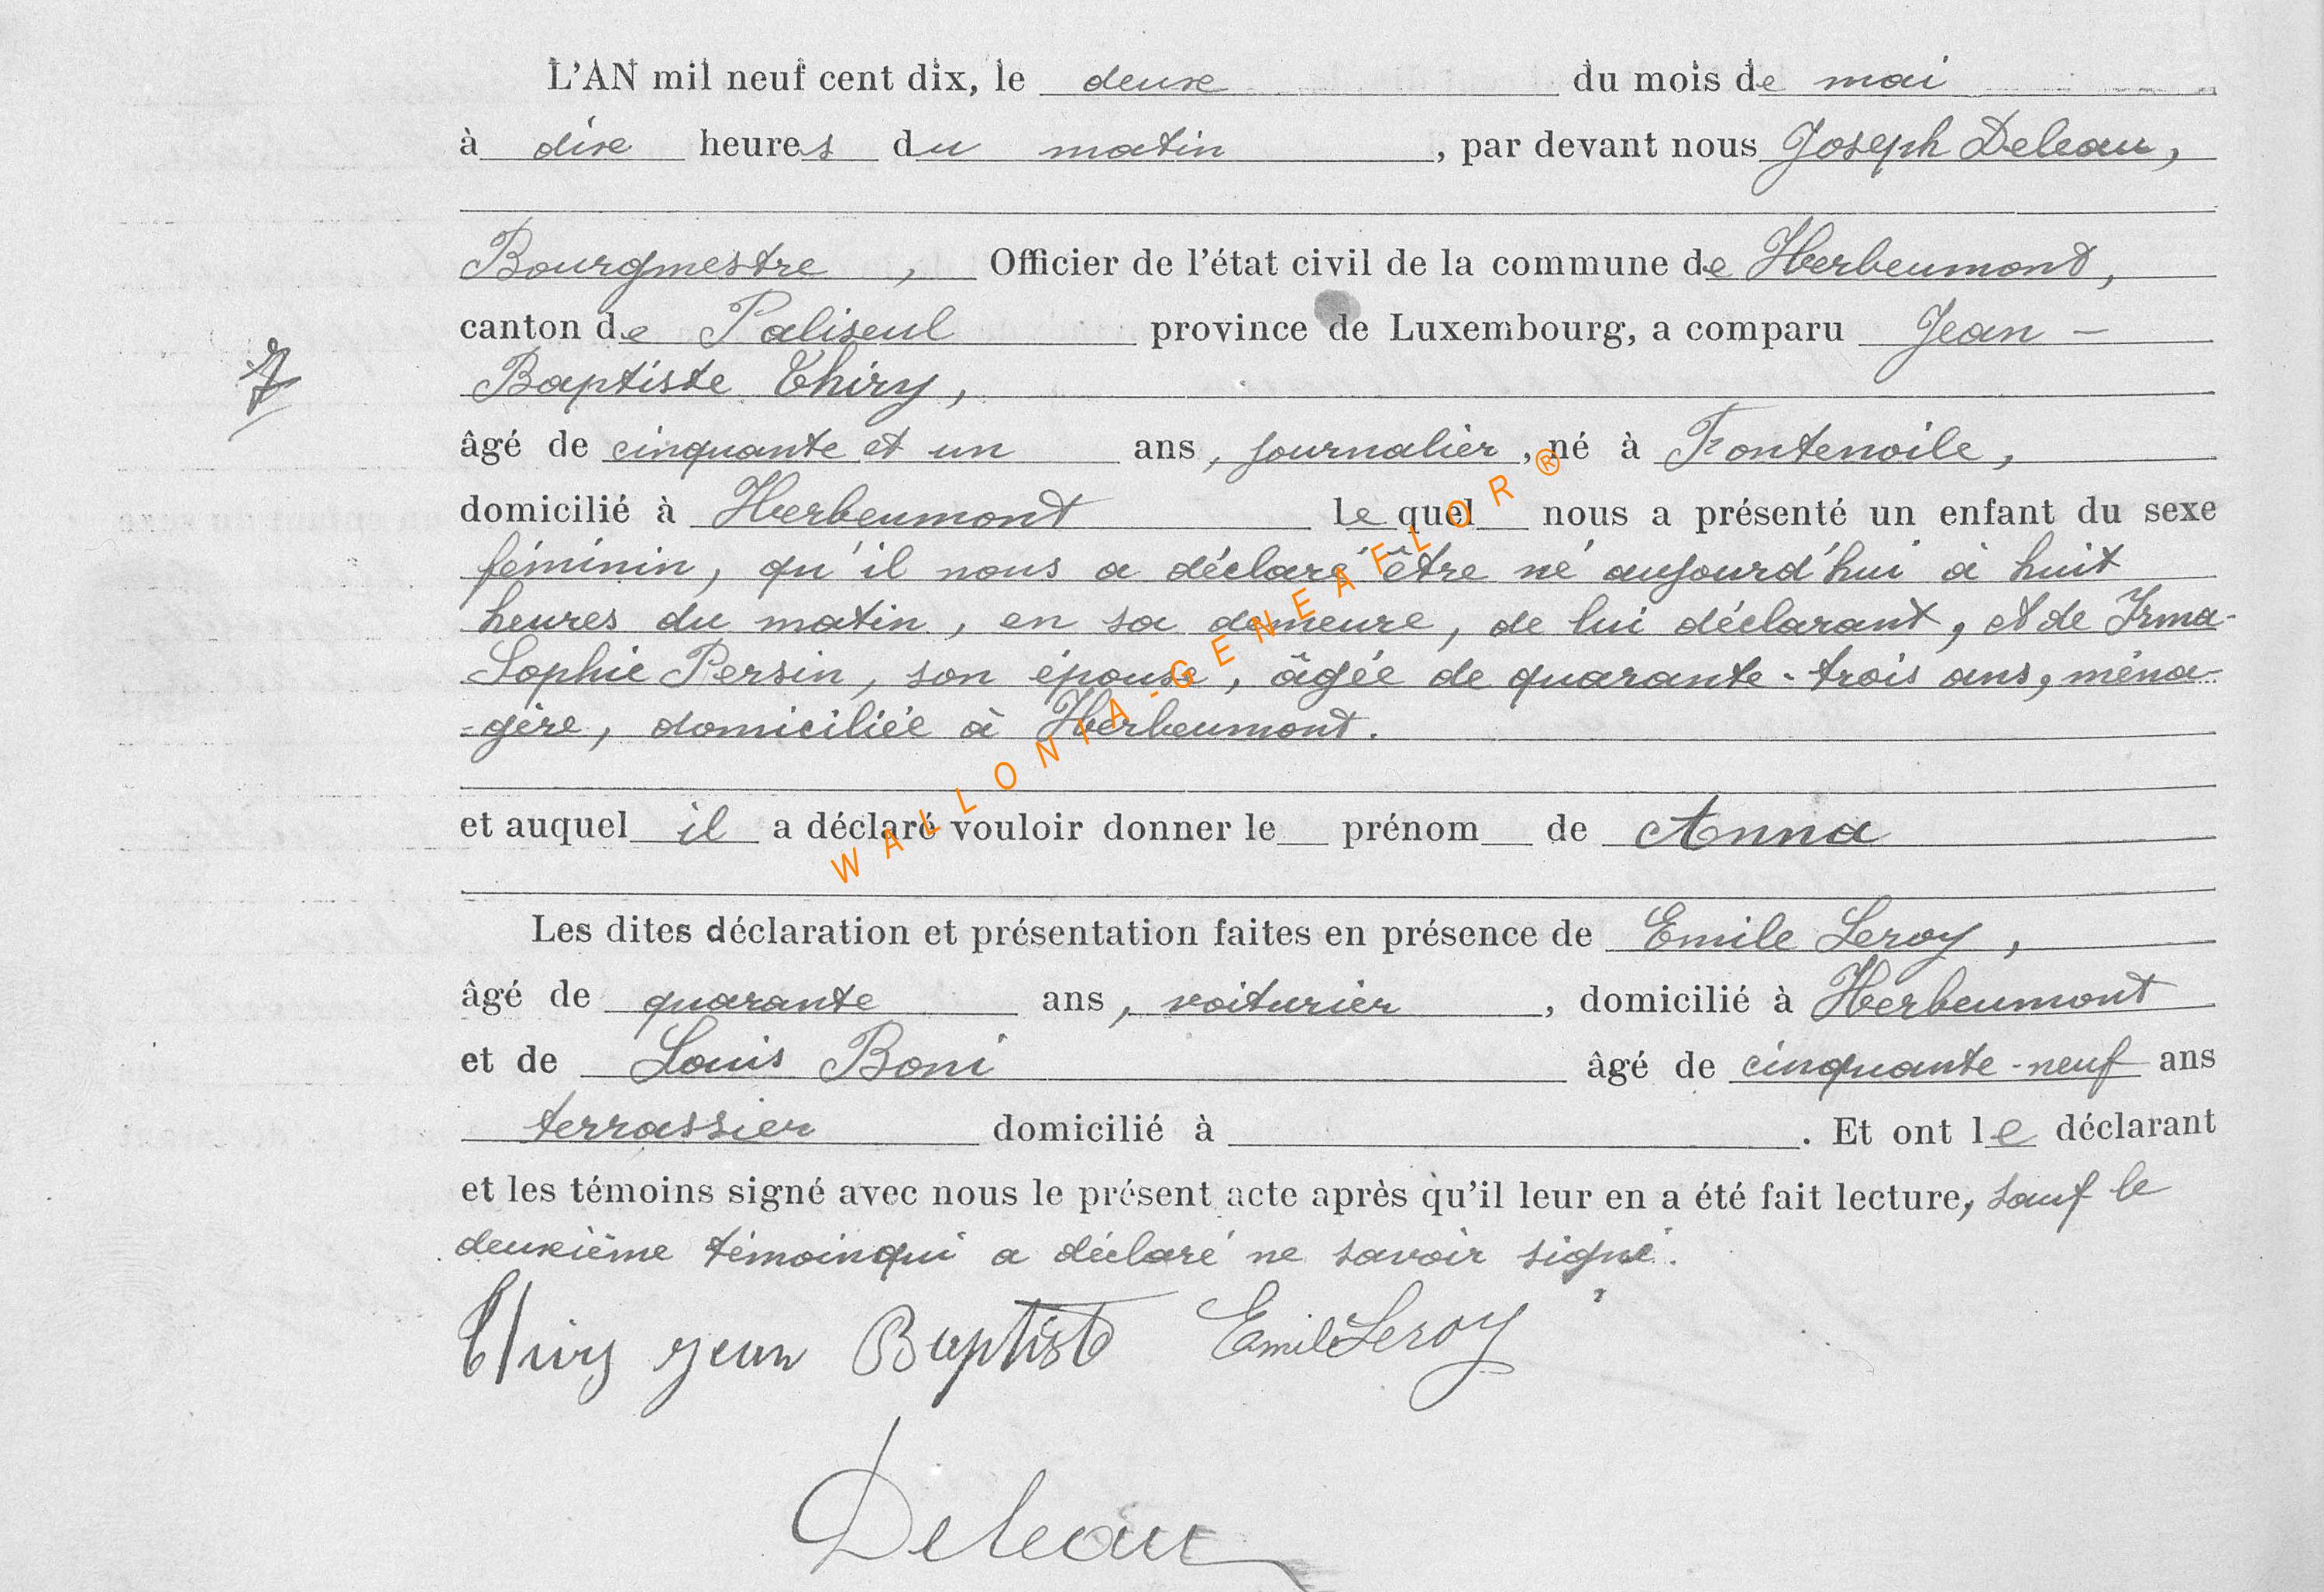 L'AN mil neuf cent dix, le deux du mois de mai
à dix heures du matin, par devant nous Joseph Deleau,
Bourgmestre, Officier de l'état civil de la commune de Herbeumont,
canton de Paliseul province de Luxembourg, a comparu Jean-
7
Baptiste Thiry,
âgé de cinquante et un ans, journalier, né à Fontenoile,
domicilié à Herbeumont lequel nous a présenté un enfant du sexe
féminin, qu'il nous a déclaré être né aujourd'hui à huit
heures du matin, en sa demeure, de lui déclarant, et de Irma-
Sophie Persin, son épouse, âgée de quarante-trois ans, ména-
-gère, domiciliée à Herbeumont.
WALLONIA-GENEAFLOR®
et auquel il a déclaré vouloir donner le prénom de Anna
Les dites déclaration et présentation faites en présence de Emile Leroy,
âgé de quarante ans, voiturier, domicilié à Herbeumont
et de Louis Boni âgé de cinquante-neuf ans
terrassier domicilié à . Et ont le déclarant
et les témoins signé avec nous le présent acte après qu'il leur en a été fait lecture, sauf le
deuxième témoin qui a déclaré ne savoir signé.
Thiry jean Baptist Emile Leroy
Deleau